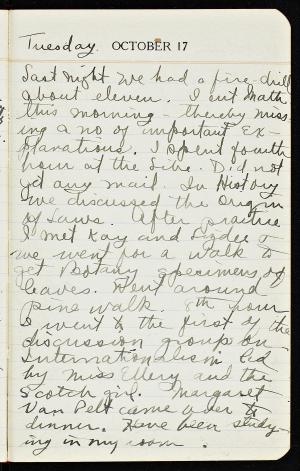 Tuesday. OCTOBER 17
Last night we had a fire-drill
about eleven. I cut Math
this morning - thereby miss-
ing a no of important Ex-
planations. I spent fourth
hour at the Libe. Did not
get any mail. In History
we discussed the Origin
of Laws. After practice
I met Kay and &
we went for a walk to
get Botany specimens of
leaves. Went around
pine walk. 8th hour
I went to the first of the
discussion group on
Internationalism led
by Miss Ellery and the
Scotch girl. Margaret
Van Pelt came over to
dinner. Have been study-
ing in my room.